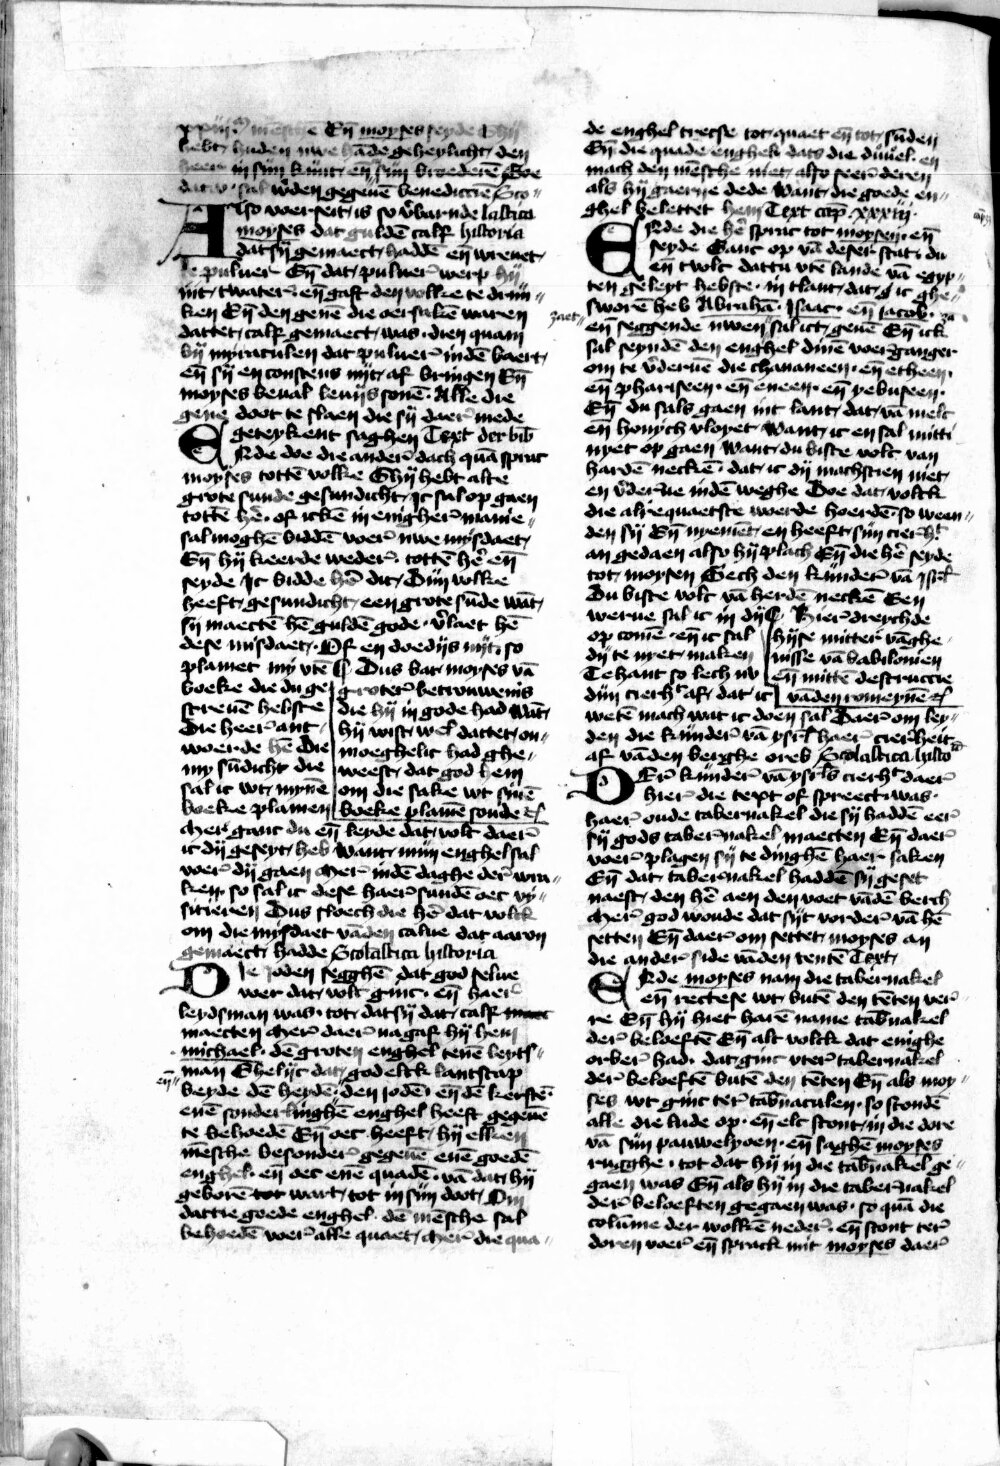 xxiij.m mēsche En̄ moyses seyde Ghij
hebt huden uwe hāde geheylicht den
heer in sijn kijnt en̄ sijn broederē Doe
dat u sal w̄den gegeuē benediccie Sco-
Also voerseit is so v̄barnde lastica
moyses dat guldē calf historia
dat sij gemaect haddē en̄ wreuet
te puluer En̄ dat puluer werp hij
int water en̄ gaft den volke te drin-
ken En̄ den genē die oersakē waren
dattet calf gemaect was dien quam
bij myraculen dat puluer indē baert
en̄ sij en constens nyt af bringen En̄
moyses beual leuijs sonē Alle die
gene doot te slaen die sij daer mede
geteykent saghen Text der bib
Ende doe die ander dach quā sprac
moyses tottē volke Ghij hebt alte
grote sunde gesundicht Ic sal op gaen
tottē he of ickē in enigher manie-
sal moghē biddē voer uwe mysdaet
En̄ hij keerde weder tottē he en̄
seyde Ic bidde he dit Dijn volke
heeft gesundicht een grote sūde wāt
sij maectē hē guldē gode v̄laet hē
dese misdaet Of en doedijs nyt so
planet my vtē
boeke die du ge
screuē hebste
Die heer ant-
woerde hē Die
my sūdicht die
sal ic wt mynē
boeke planen
Dus bat moyses vā
groter betrouwenis
die hij in gode had wāt
hij wist wel dattet on-
moeghelic had ghe-
weest dat god hem
om die sake wt sinē
boeke planē soude
Mer ganc du en̄ leyde dat volt daer
ic dij geseyt heb Want mijn enghel sal
voer dij gaen Mer indē daghe der wra-
ken so sal ic dese haer sundē oec vy-
sitieren Dus sloech die hē dat volck
om die mysdaet vādē calue dat aaron
gemaect hadde Scolastica historia
Die Joden segghē dat god selue
wer dat volc ginc en̄ haer
leydsman was tot dat sij dat calf
maecten Mer daer na gaf hij hem
michael dē groten enghel tenē leyts-
man Ghelijc dat god elck lantscap
en̄
beyde dē heydē den jodē en̄ dē kerstē
enē sonderlinghē enghel heeft gegeuē
te behoedē En̄ oec heeft hij elken
mēsche besonder gegeuē enē goedē
enghel en̄ oec enē quadē vā dat hij
geborē tot wart tot in sijn doot Om
dattie goede enghel dē mēsche sal
behoedē voer alle quaet Mer die qua-
de enghel trecse tot quaet en̄ tot sūden
En̄ die quade enghel dats die duuel en
mach den mēsche niet also seer deren
als hij gaerne dede Want die goede en-
ghel belettet hem Text cap xxxiij
Ende die he sprac tot moysen en̄
seyde Ganc op vā deser stat du
en̄ tvolc dattu vtē lande vā egyp-
ten geleyt hebste in tlant dat ic ghe-
sworē heb Abrahā Isaac en̄ jacob
zaet
en̄ seggende uwen sal ict geuē En̄ ick
sal seyndē den enghel dinē voerganger
om te v̄deruē die chananeen en̄ etheen
en̄ phariseen en̄ eneen en̄ yebuseen
En̄ du sals gaen int lant dat vā melc
en̄ honych vloyet Want ic en sal mitti
nyet op gaen Want du biste volc van
hardē neckē dat ic dij machscien niet
en v̄derue indē weghe Doe dat volck
die alrequaetste woerde hoerdē so ween-
den sij En̄ nyemēt en heeft sijn cierht
an gedaen also hij plach En̄ die hē seyde
tot moysen Sech den kijnder vā isrl
Du biste volc vā herdē neckē Een
werue sal ic in dij
op comē en̄ ic sal
dij te nyet maken
Tehant so lech nu
dijn cierht af dat ic
Hier dreychde
hijse mitter vāghe-
nisse vā babilonien
en̄ mittē destruccie
vāden romeynē
wetē mach wat ic doen sal Daer om ley-
den die kijnder vā ysrl haer cierheit
af vāden berghe oreb Scolastica histo
Der kijnder vā ysrls cierht daer
hier die text of spreect was
haer oude tabernakel die sij haddē eer
sij gods tabernakel maecten En̄ daer
voer plagen sij te dinghē haer saken
En̄ dat tabernakel haddē sij geset
naest den hē aen den voet vādē berch
Mer god woude dat sijt vorder vā hē
setten En̄ daer om settet moyses an
die ander side vāden tentē Text
Ende moyses nam die tabernakel
en̄ rectese wt butē den tēten ver-
re En̄ hij hiet harē name tab̄nakel
der beloeftē En̄ alt volck dat enighe
orber had dat ginc vter tabernakel
der beloeftē butē den tēten En̄ als moy-
ses wt ginc ter tab̄naculen so stondē
alle die lude op en̄ elc stont in die dore
vā sijn pauwelyoen en̄ saghē moyses
rugghe tot dat hij in die tab̄nakel ge-
gaen was En̄ als hij in die tabernakel
der beloeften gegaen was so quā die
colūme der wolkē neder en̄ stont ter
doren voer en̄ sprack mit moyses daer